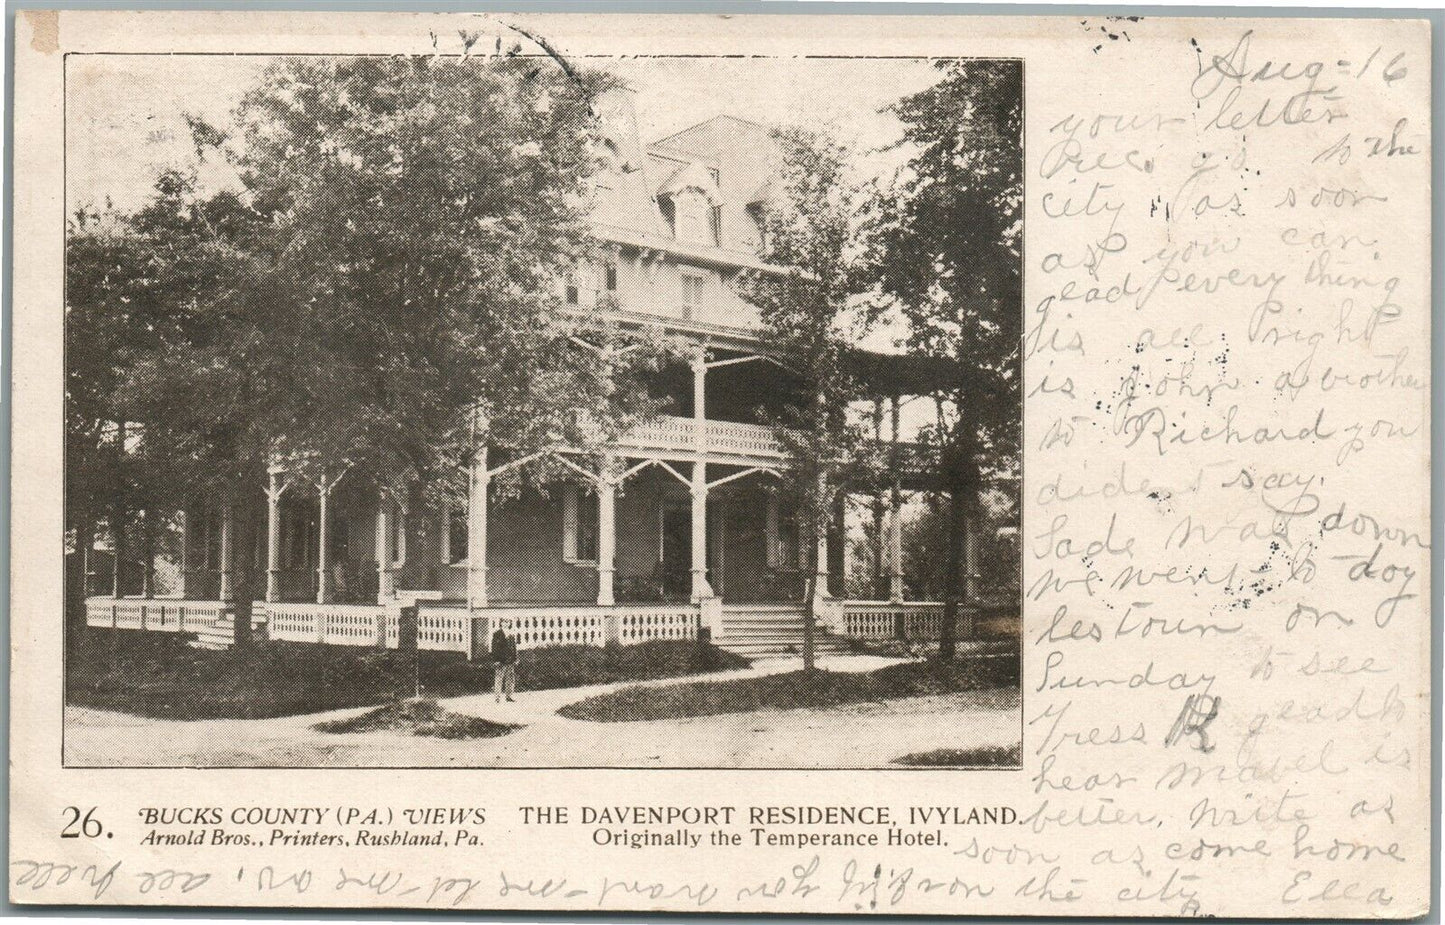 Aug = 16
your letter
Rec. go to the
city as soon
as you can.
glad every thing
is all right
is John a brother
to Richard you
diden t say.
Sade was down
we went to doy
lestown on
Sunday to see
Tress gead to
hear Mabel is
better. Write as
soon as come home
from the city Ella
26. BUCKS COUNTY (PA.) VIEWS
Arnold Bros., Printers, Rushland, Pa.
THE DAVENPORT RESIDENCE, IVYLAND.
Originally the Temperance Hotel.